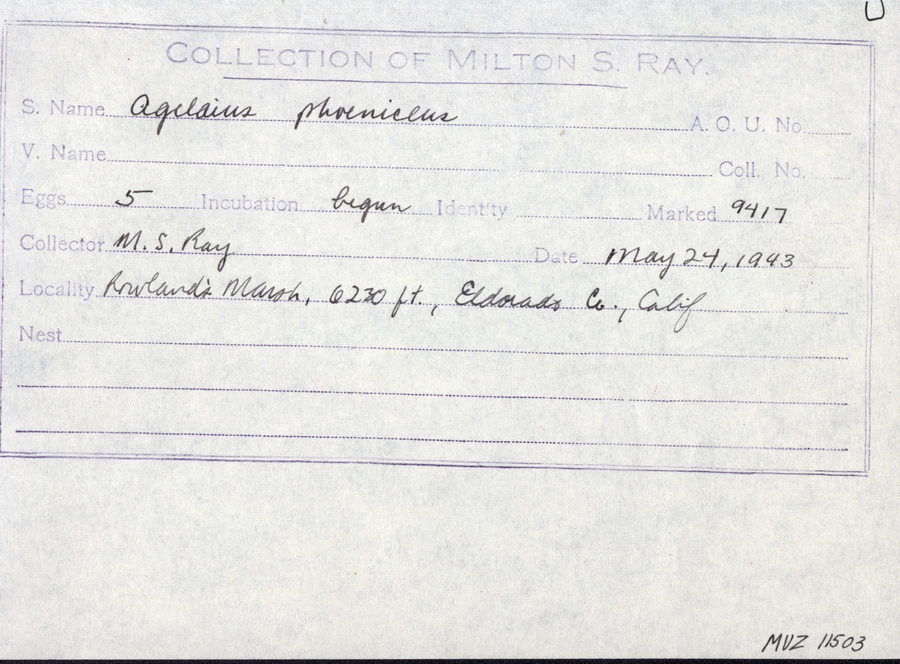 COLLECTION OF MILTON S. RAY.
S. Name Agelaius phoeniceus A. O. U. No.
V. Name Coll. No.
Eggs 5 Incubation begun Identity Marked 9417
Collector M. S. Ray Date May 24, 1943
Locality Rowland's Marsh, 6230 ft., Eldorado Co., Calif
Nest
MVZ 11503